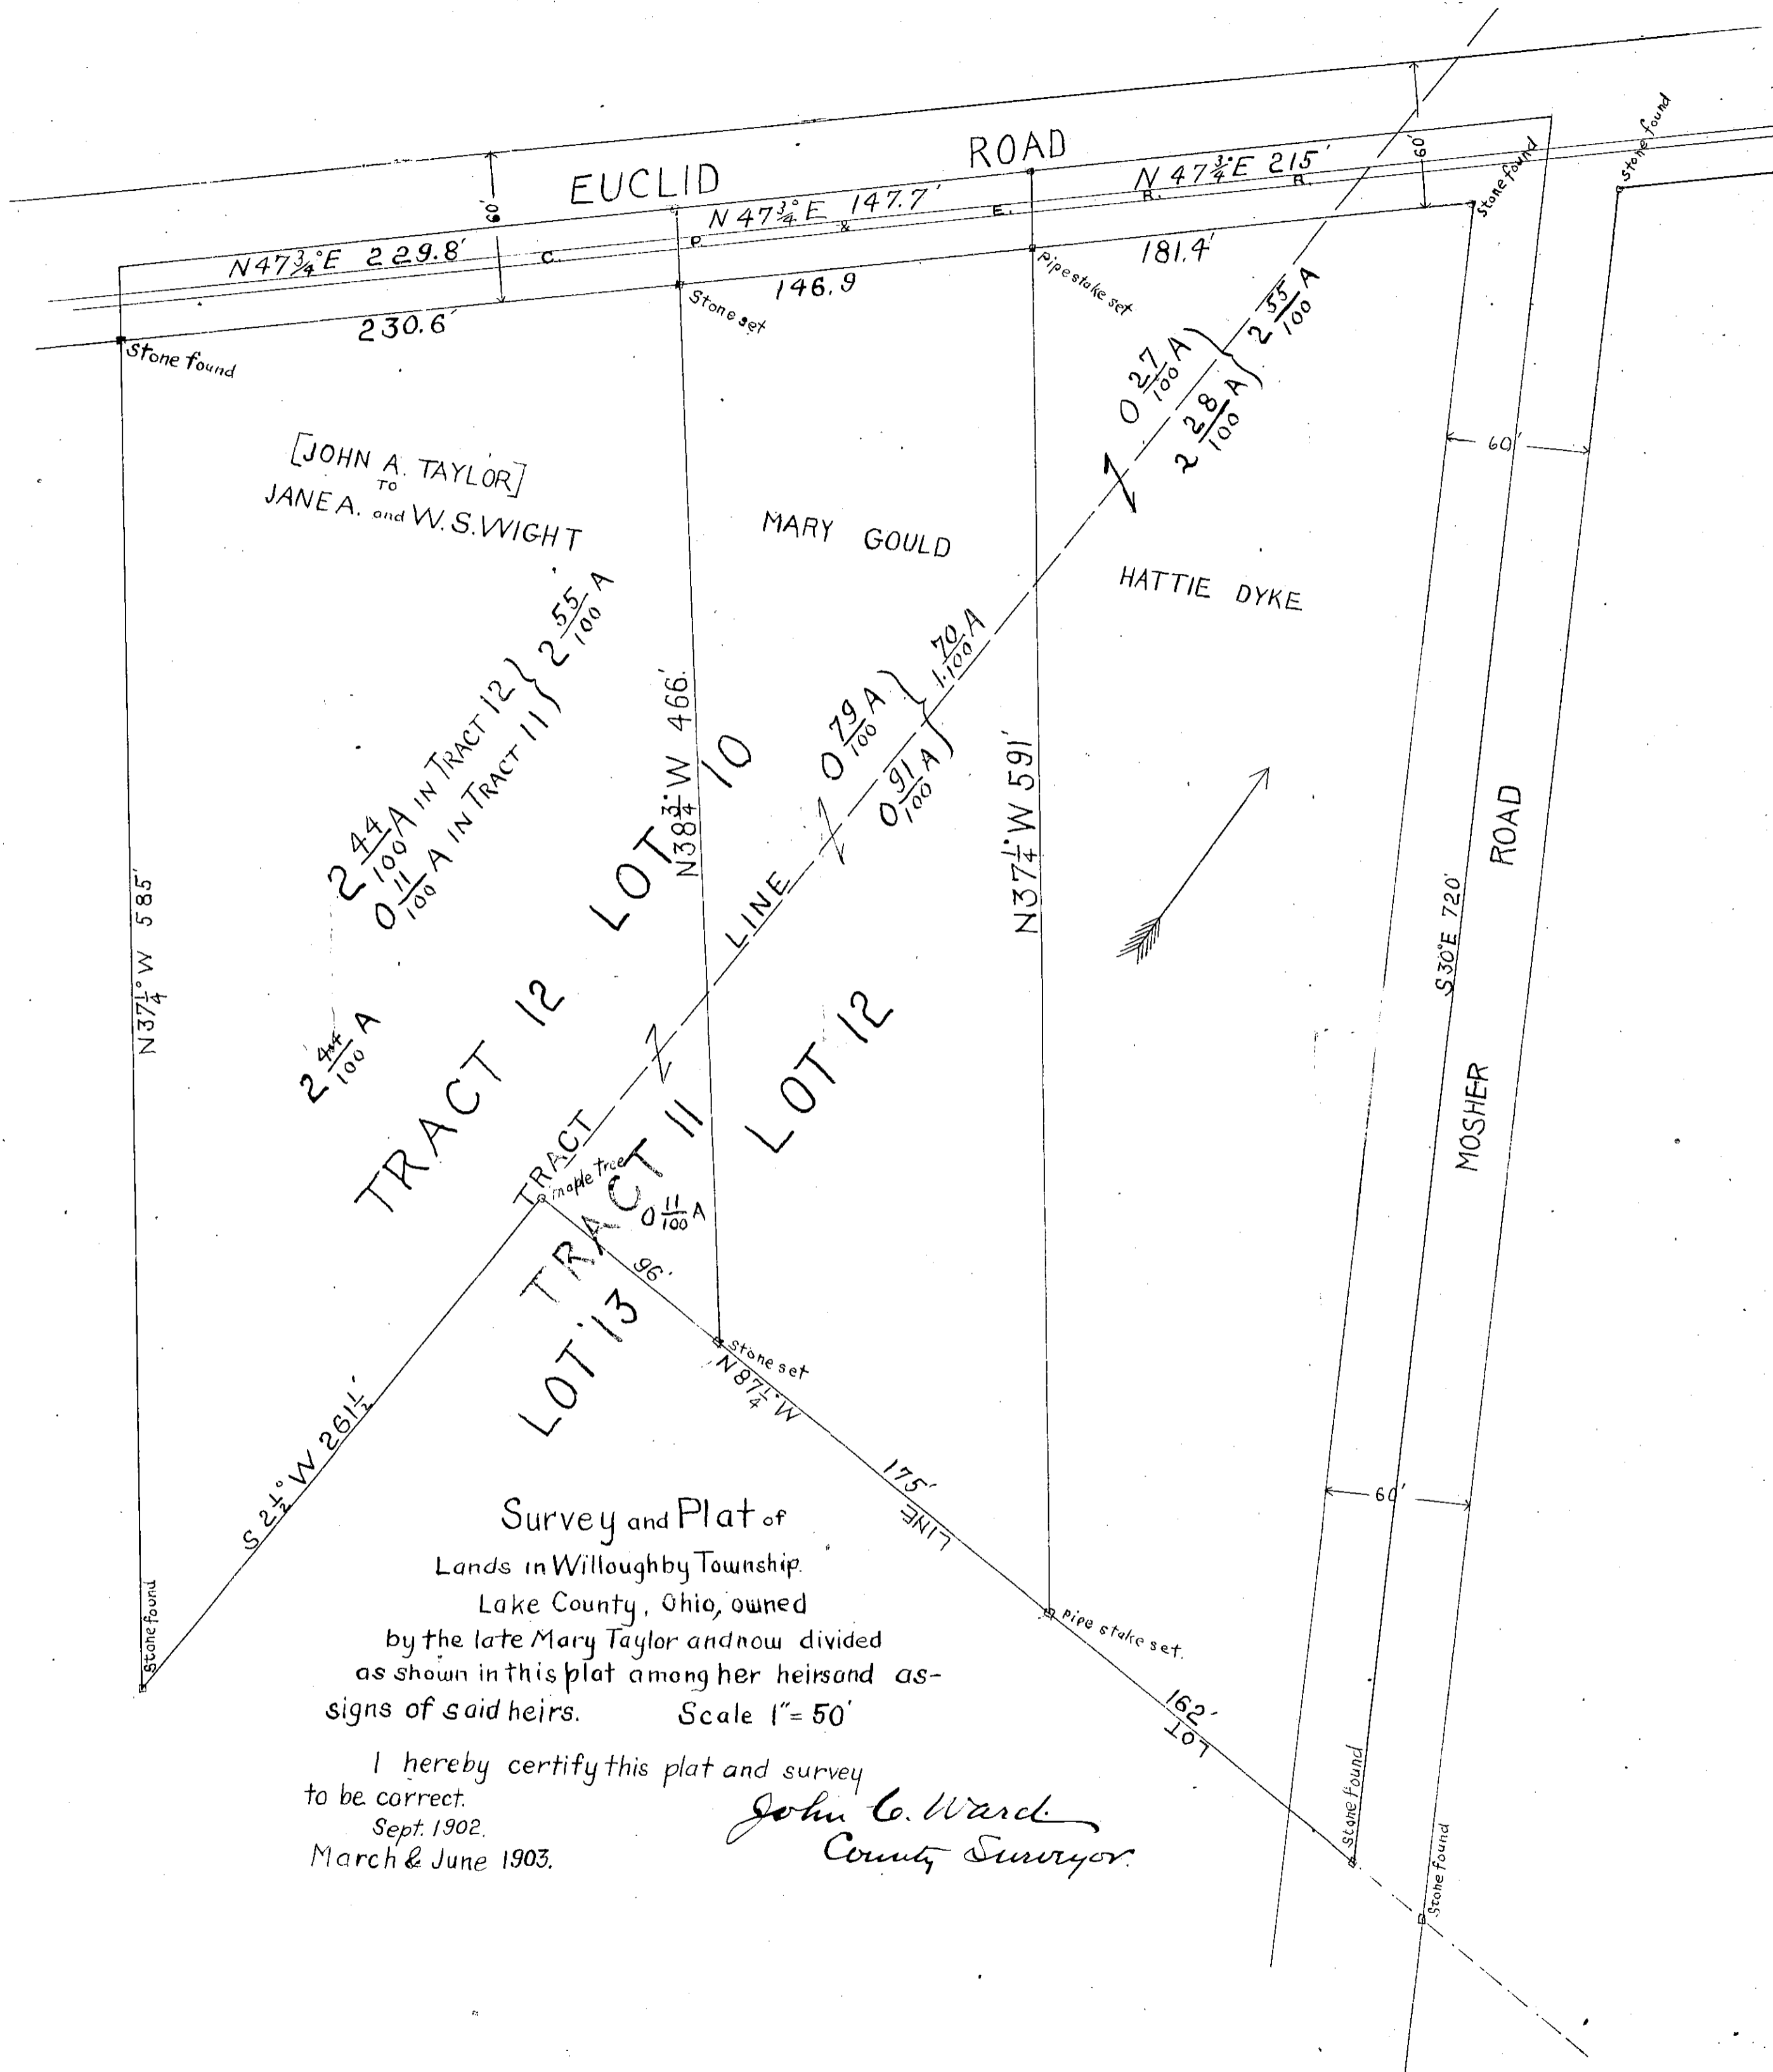 EUCLID ROAD
60'
60'
N 47¾° E 229.8'
N 47¾° E 147.7'
N 47¾° E 215'
C. P. & E. R. R.
230.6'
146.9
181.4'
Stone found
Stone set
Pipe stake set
Stone found
Stone found
[JOHN A. TAYLOR]
TO
JANE A. and W. S. WIGHT
MARY GOULD
HATTIE DYKE
0 27/100 A
2 28/100 A
2 55/100 A
60'
2 44/100 A IN TRACT 12
0 11/100 A IN TRACT 11
2 55/100 A
0 79/100 A
0 91/100 A
1. 70/100 A
N 37¼° W 585'
N 38¾° W 466.'
N 37¼° W 591'
S 30° E 720'
MOSHER ROAD
2 44/100 A
TRACT 12 LOT 10
TRACT LINE
maple tree
TRACT 11 LOT 12
0 11/100 A
LOT 13
96'
Stone set
N 87¼° W
175'
LINE
Pipe stake set.
162'
LOT
60'
S 2½° W 261½'
Stone found
Stone found
Stone found
Survey and Plat of
Lands in Willoughby Township.
Lake County, Ohio, owned
by the late Mary Taylor and now divided
as shown in this plat among her heirs and as-
signs of said heirs. Scale 1" = 50'
I hereby certify this plat and survey
to be correct.
Sept. 1902.
March & June 1903.
John C. Ward
County Surveyor.